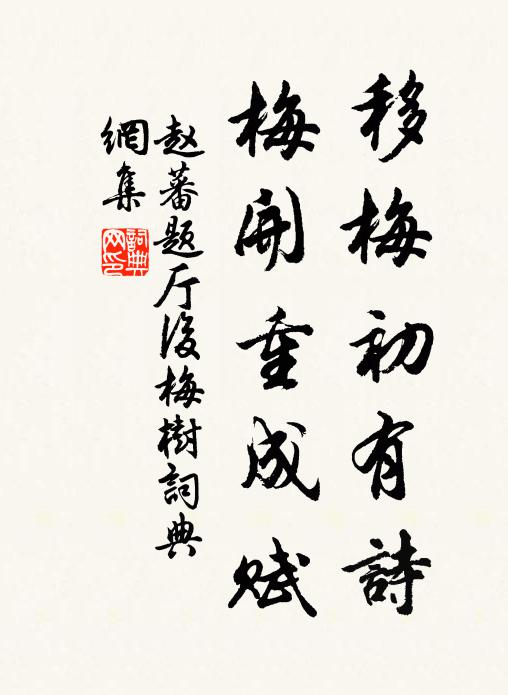 移梅初有詩
梅開重成赋
赵蕃题厅後梅樹詞典
網集
詞典
网印